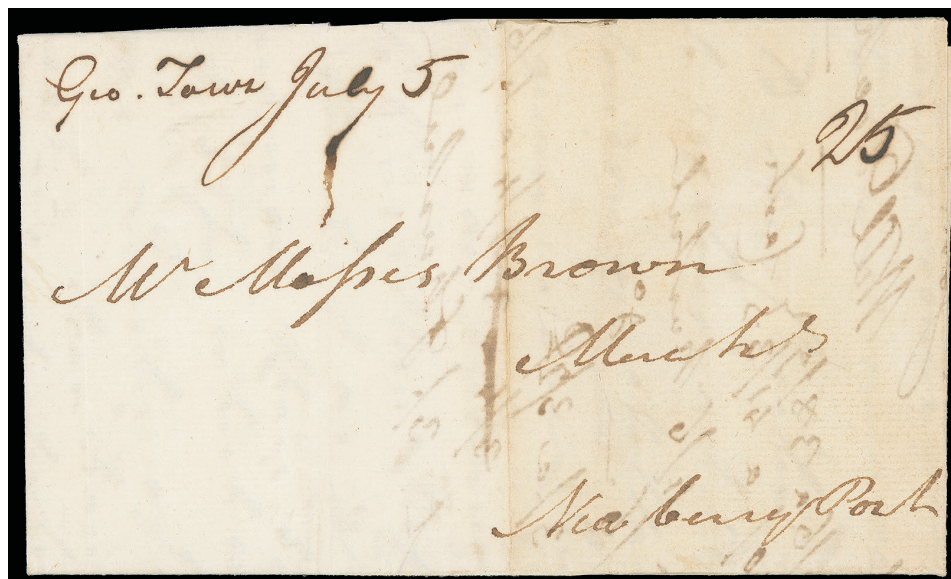 Geo. Town July 5
25
Mr Mosses Brown
Mercht
Newberry Port